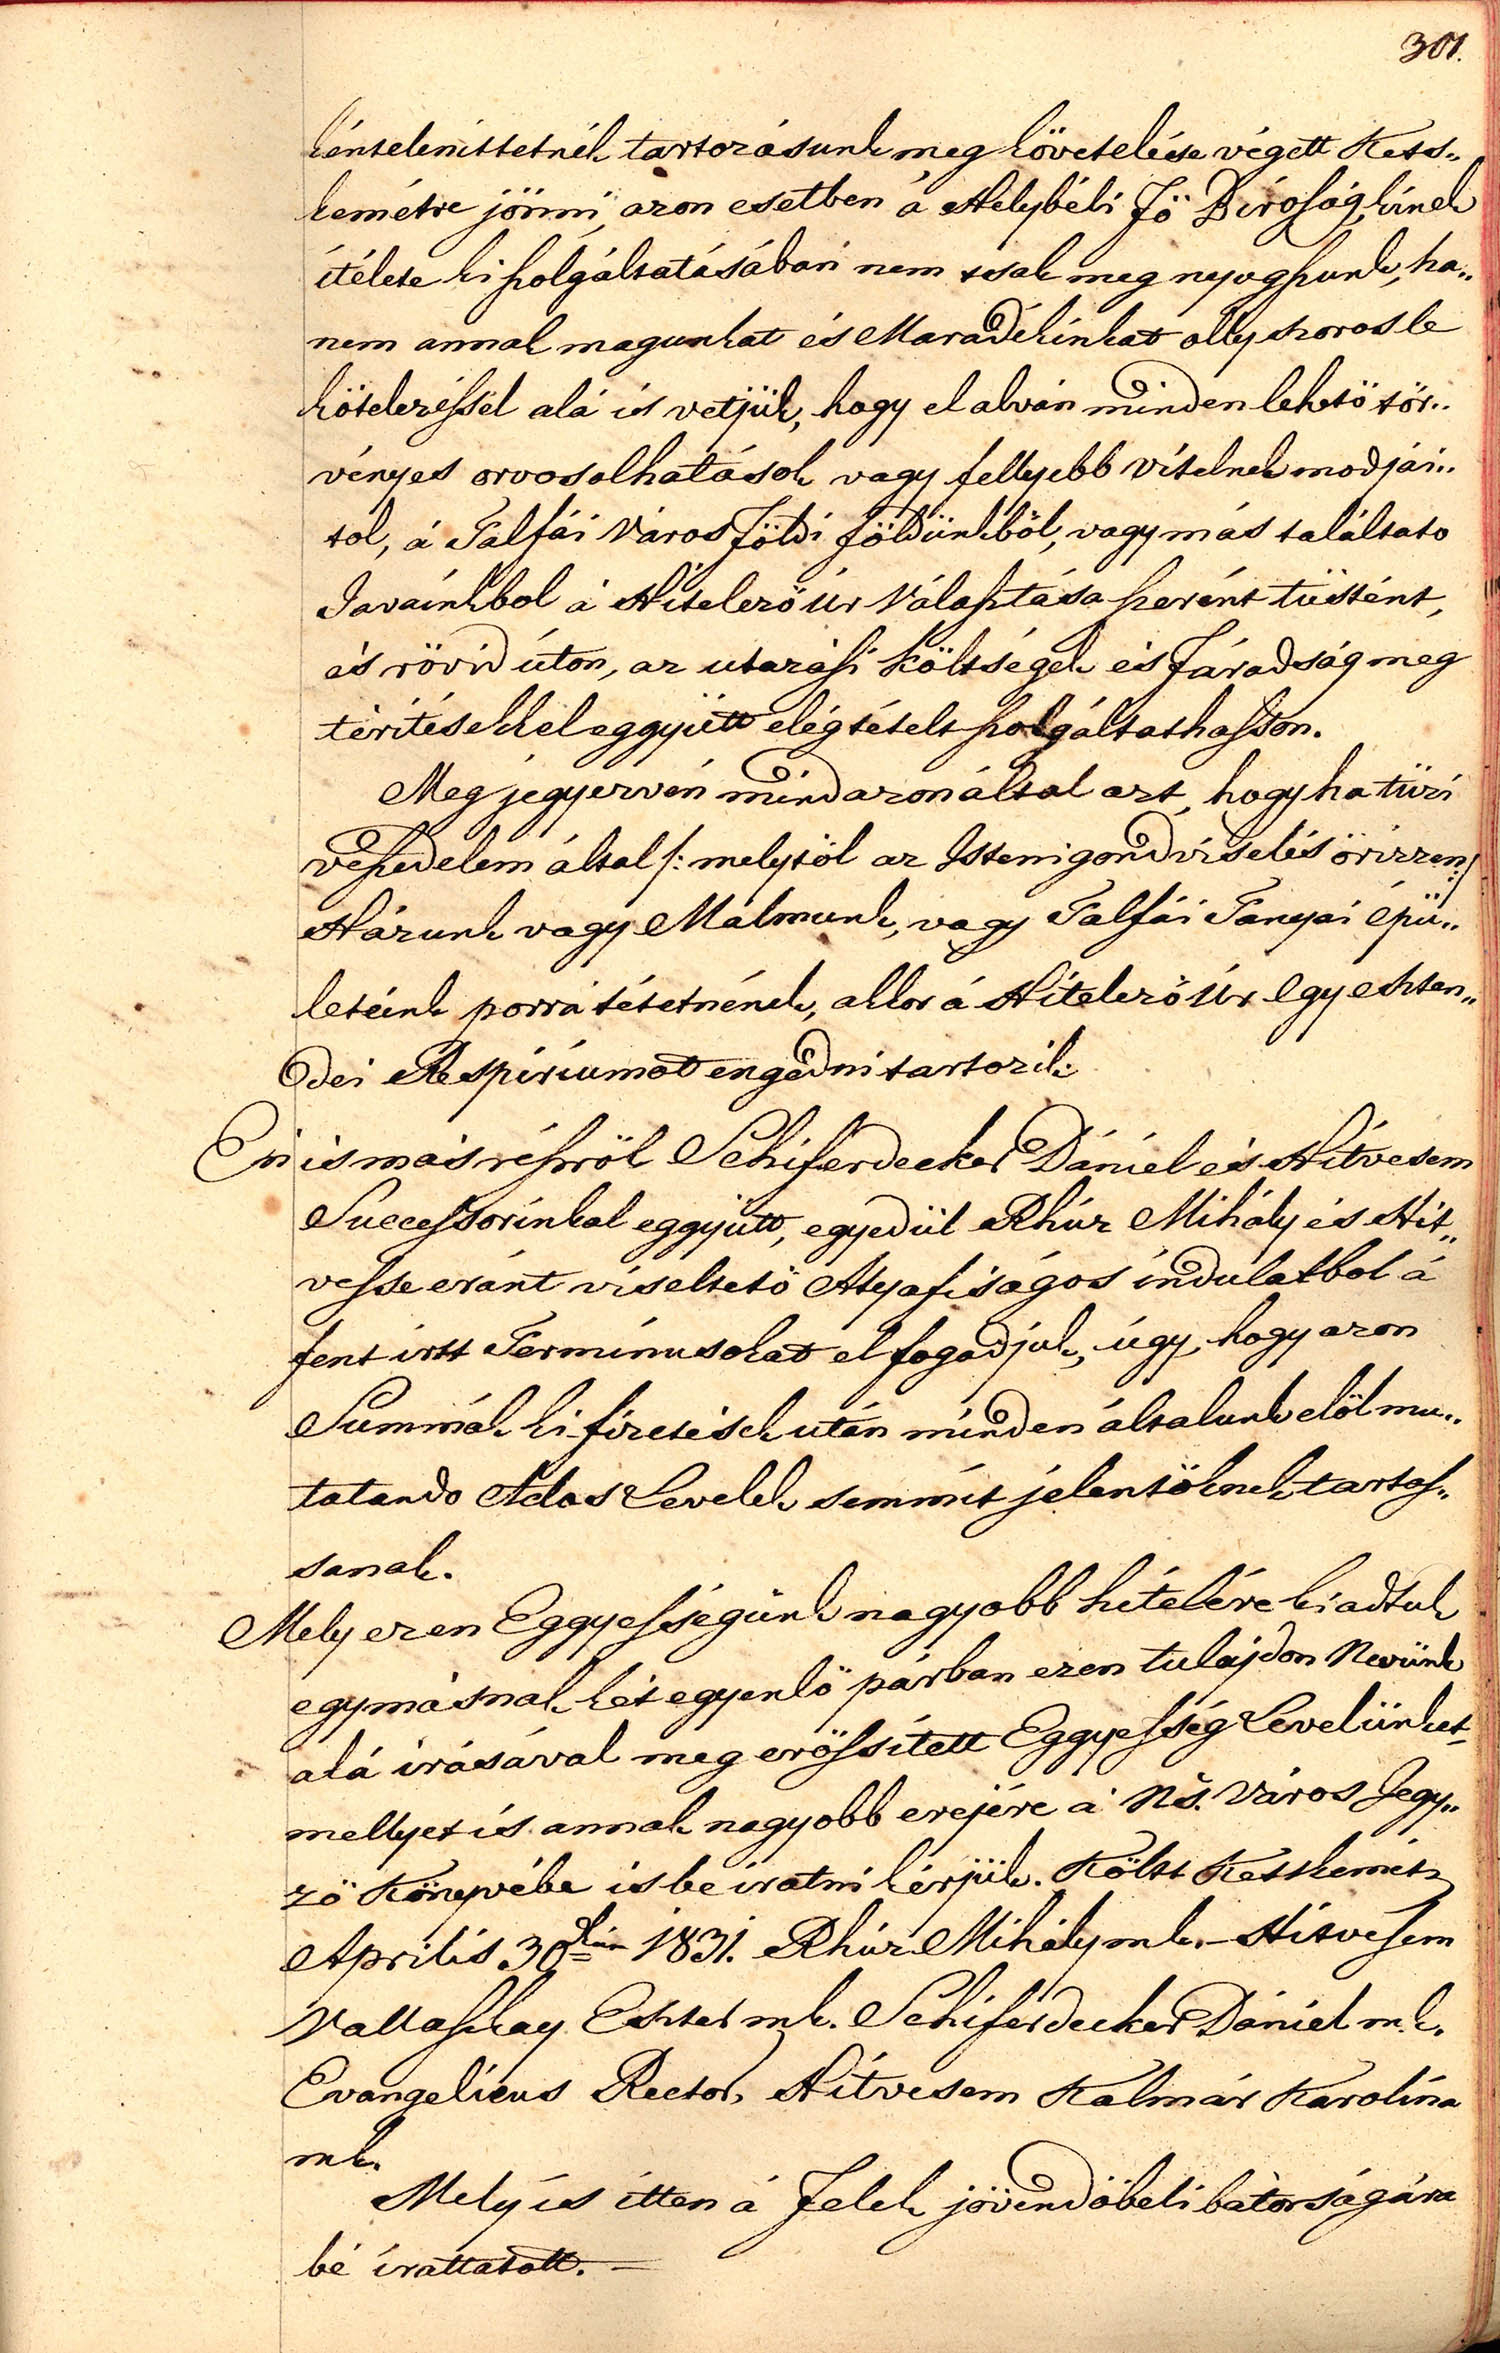 301.
kéntelenittetnék tartozásunk meg követelése végett Kets„
kemétre jönni, azon esetben á Helybéli Fö Biróság, kinek
itélete ki szolgáltatásában nem tsak meg nyugszunk, ha„
nem annak magunkat és Maradékinkat olly szoros le
kötelezéssel alá is vetjük, hogy el alván minden lehetö tör„
vényes orvosolhatások vagy fellyebb vitelnek modjai„
tol, á Talfái Város Földi földünkböl, vagy más találtato
Javainkbol á Hitelezö Úr Választása szerént tüstént,
és rövid úton, az utazási költségek és Fáradság meg
téritésekkel eggyütt elégtételt szolgáltathasson.
Meg jegyezvén mindazonáltal azt, hogy ha tüzi
veszedelem által /: melytöl az Isteni gondviselés örizzen :/
Házunk vagy Malmunk, vagy Talfái Tanyai épü„
leteink porrá tétetnének, akkor á Hitelezö Úr egy eszten„
dei Respiriumot engedni tartozik.
Én is más részröl Schiferdecker Dániel és Hitvesem
Successorinkal eggyütt, egyedül Rhúz Mihály és Hit„
vesse eránt viseltetö Atyafiságos indulatbol á
fent irtt Terminusokat el fogadjuk, úgy, hogy azon
Summák ki fizetések után minden általunk elöl mu„
tatando Adós Levelek semmit jelentöknek tartas„
sanak.
Mely ezen Eggyességünk nagyobb hitelére ki adtuk
egymásnak két egyenlö párban ezen tulajdon Nevünk
alá irásával meg erössitett Eggyesség Levelünket,
mellyet is annak nagyobb erejére á Ns. Város Jegy„
zö Könyvébe is be iratni kérjük. Költt Ketskemét
Aprilis 30dikán 1831. Rhúz Mihály mk. – Hitvesem
Vallaskay Eszter mk. Schiferdecker Dániel m.k.
Evangelicus Rector, Hitvesem Kalmár Karolina
mk.
Mely is itten á Felek jövendöbeli bátorságára
bé irattatott. –